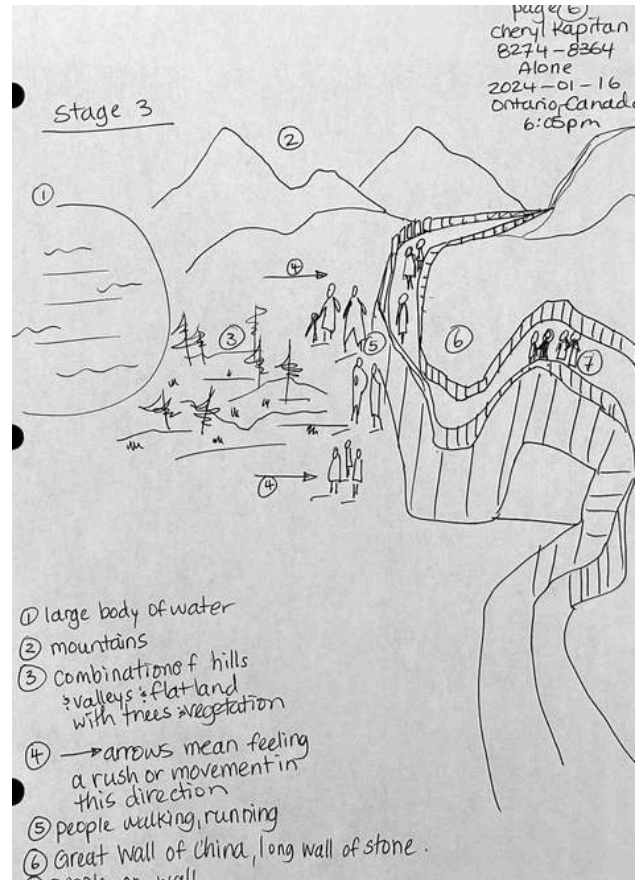 page ⑥
Cheryl Kapitan
8274-8364
Alone
2024-01-16
Ontario, Canada
6:05pm
Stage 3
②
①
④
③
⑤
⑥
⑦
④
① large body of water
② mountains
③ combination of hills
& valleys & flatland
with trees & vegetation
④ → arrows mean feeling
a rush or movement in
this direction
⑤ people walking, running
⑥ Great Wall of China, long wall of stone.
people on wall